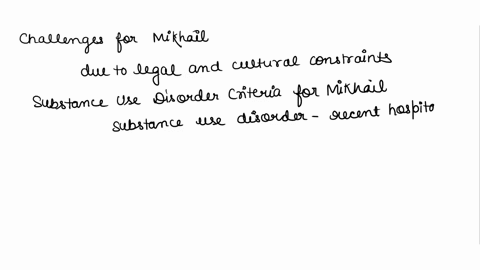 Challenges for Mikhail
due to legal and cultural constraints
Substance Use Disorder Criteria for Mikhail
substance use disorder - recent hospito